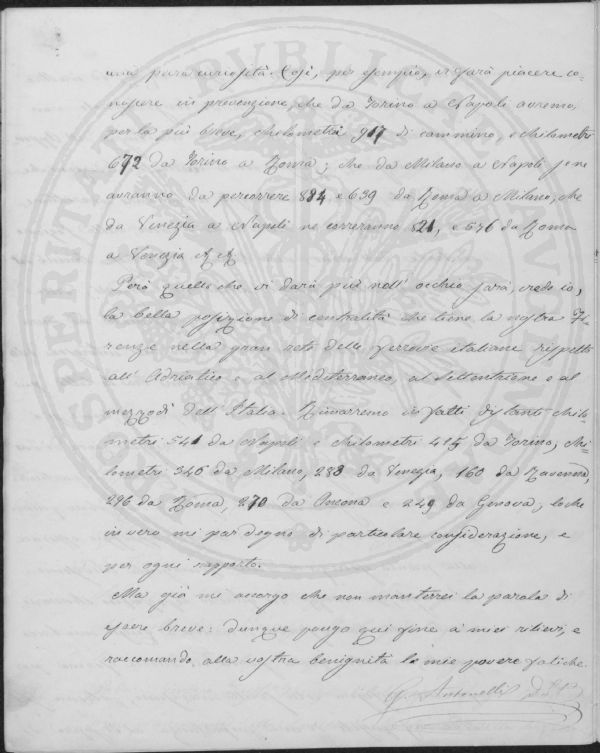 una pura curiosità. Così, per esempio, vi sarà piacere co-
noscere in prevenzione, che da Torino a Napoli avremo,
per la più breve, chilometri 917 di cammino, e chilometri
672 da Torino a Roma; che da Milano a Napoli se ne
avranno da percorrere 884 e 639 da Roma a Milano; che
da Venezia a Napoli ne correranno 821, e 576 da Roma
a Venezia &. &.
Però quello che vi darà più nell' occhio sarà, credo io,
la bella posizione di centralità che tiene la nostra Fi-
renze nella gran rete delle ferrovie italiane rispetto
all' Adriatico e al Mediterraneo, al Settentrione e al
mezzodì dell' Italia. Rimarremo infatti distanti chilo-
metri 541 da Napoli e chilometri 415 da Torino, chi-
lometri 346 da Milano, 238 da Venezia, 160 da Ravenna,
296 da Roma, 270 da Ancona e 249 da Genova, loche
in vero mi par degno di particolare considerazione, e
per ogni rapporto.
Ma già mi accorgo che non manterrei la parola di
essere breve: dunque pongo qui fine a' miei rilievi, e
raccomando alla vostra benignità le mie povere fatiche.
G. Antonelli D.S.P.
SPERITATI PVBLICAE